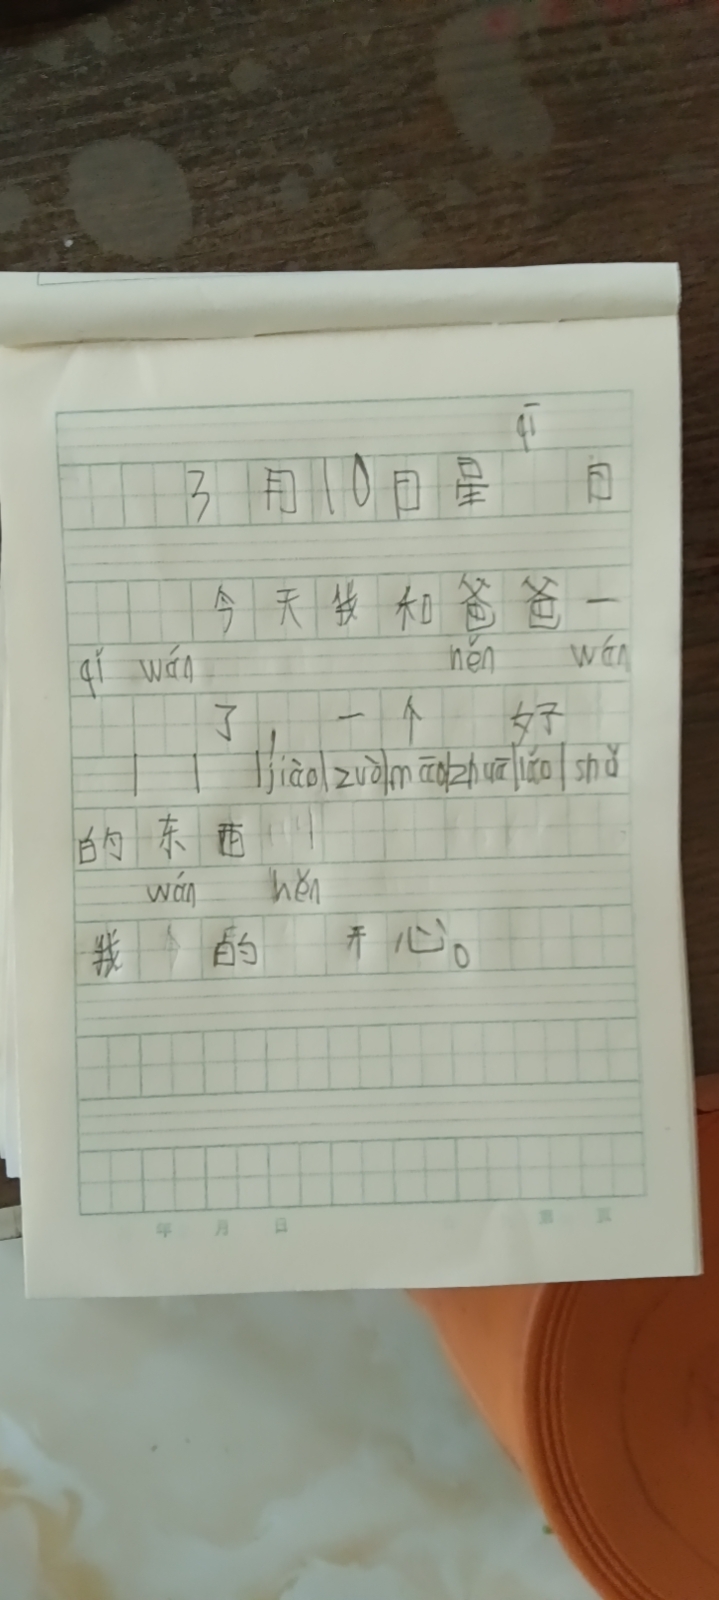 qī
3月10日星 日
今天我和爸爸一
qǐ wán hěn wán
了，一个 好
jiào zuò māo zhuā lǎo shǔ
的东西
wán hěn
我 的 开心。
年 月 日 第 页